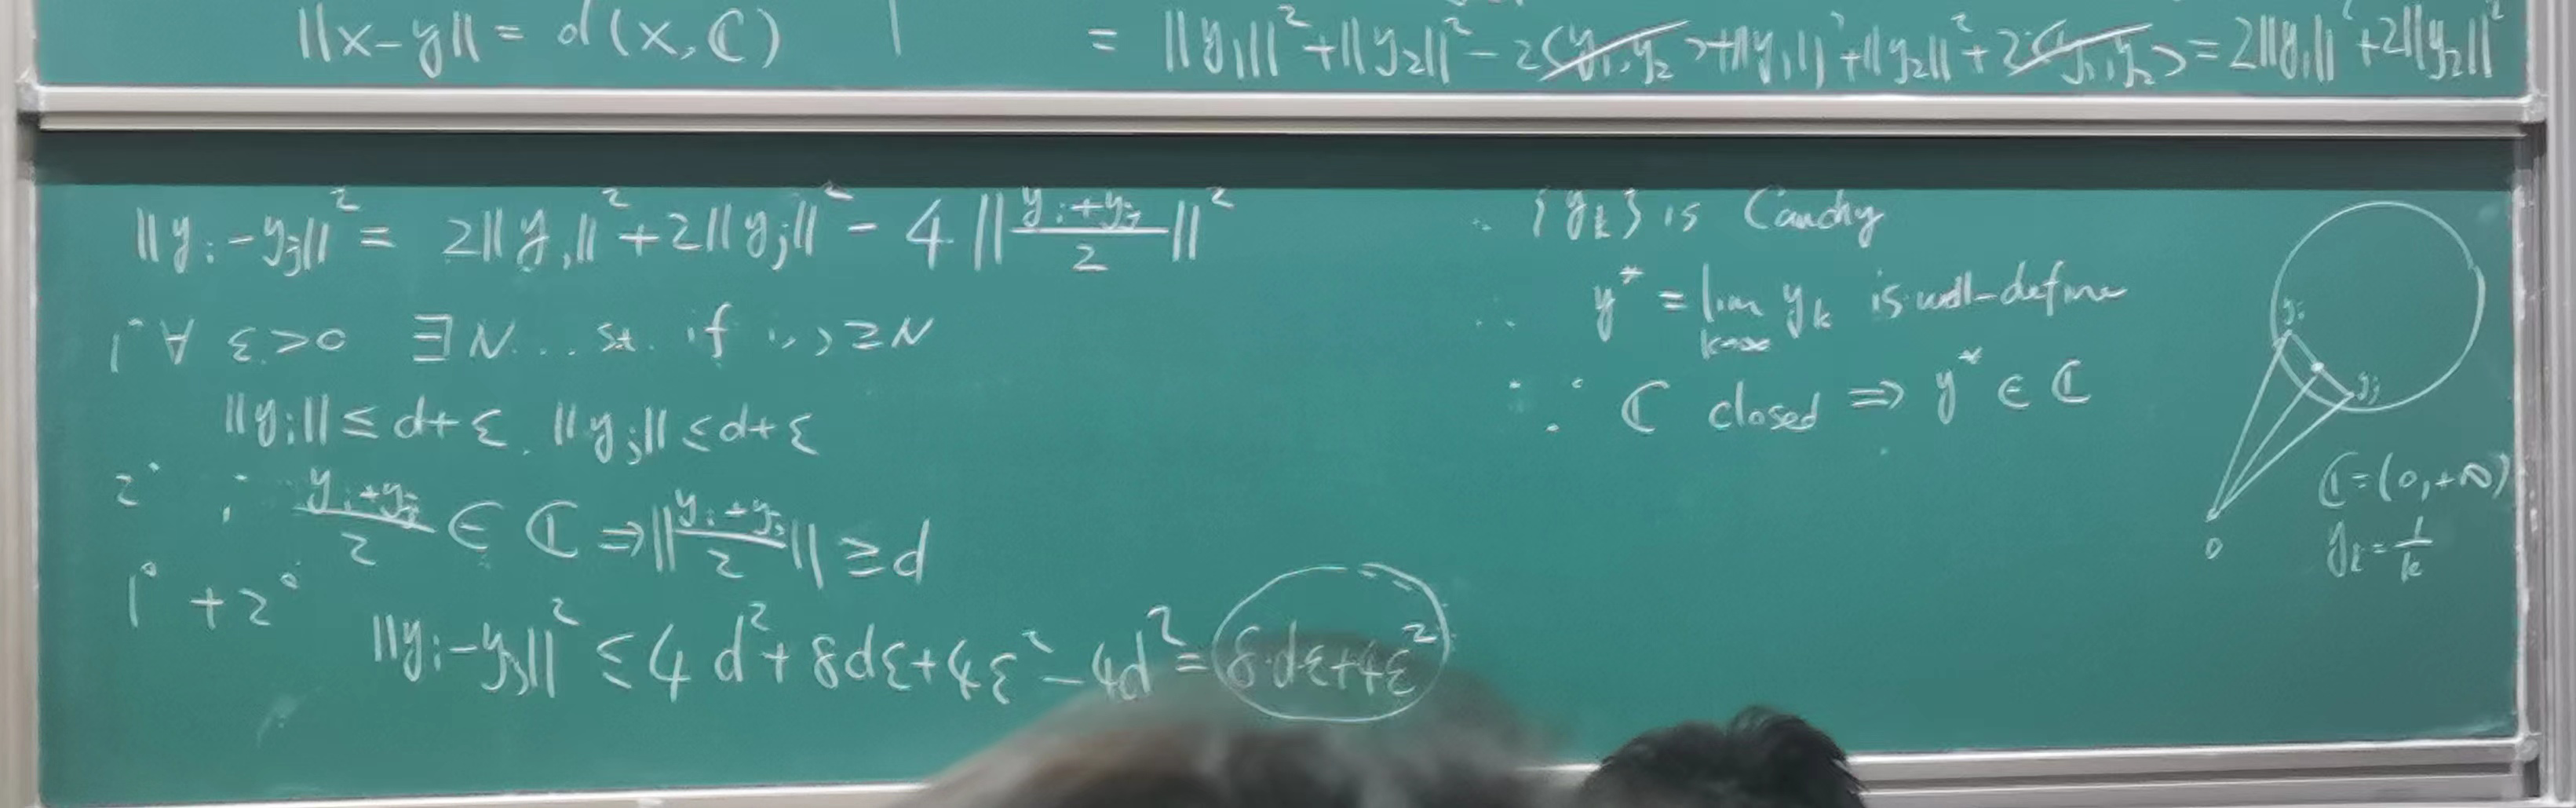 ||x-y|| = d(x, ℂ)
= ||y₁||² + ||y₂||² - 2<y₁, y₂> + ||y₁||² + ||y₂||² + 2<y₁, y₂> = 2||y₁||² + 2||y₂||²
||yᵢ - yⱼ||² = 2||yᵢ||² + 2||yⱼ||² - 4 ||(yᵢ+yⱼ)/2||²
1° ∀ ε>0 ∃ N... st. if i, j ≥ N
||yᵢ|| ≤ d+ε, ||yⱼ|| ≤ d+ε
2° ∵ (yᵢ+yⱼ)/2 ∈ ℂ ⇒ ||(yᵢ+yⱼ)/2|| ≥ d
1° + 2°
||yᵢ - yⱼ||² ≤ 4d² + 8dε + 4ε² - 4d² = 8·dε + 4ε²
∴ {yₖ} is Cauchy
∴ y* = lim k→∞ yₖ is well-define
∵ ℂ closed ⇒ y* ∈ ℂ
yᵢ
yⱼ
0
ℂ = (0, +∞)
yₖ = 1/k